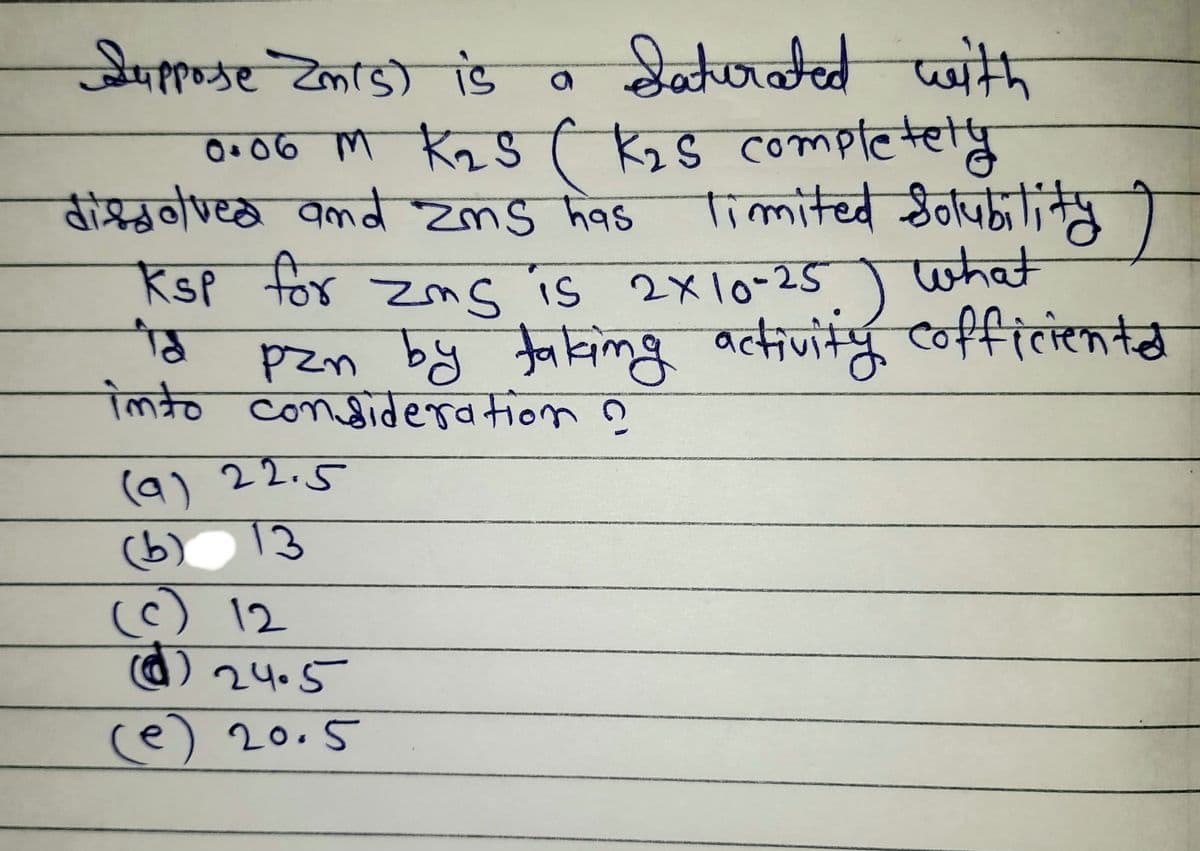 Suppose Zn(s) is a Saturated with
0.06 M K2S ( K2S completely
dissolves and ZnS has limited Solubility )
Ksp for ZnS is 2x10-25 ) what
is pZn by taking activity cofficients
into consideration ?
(a) 22.5
(b) 13
(c) 12
(d) 24.5
(e) 20.5